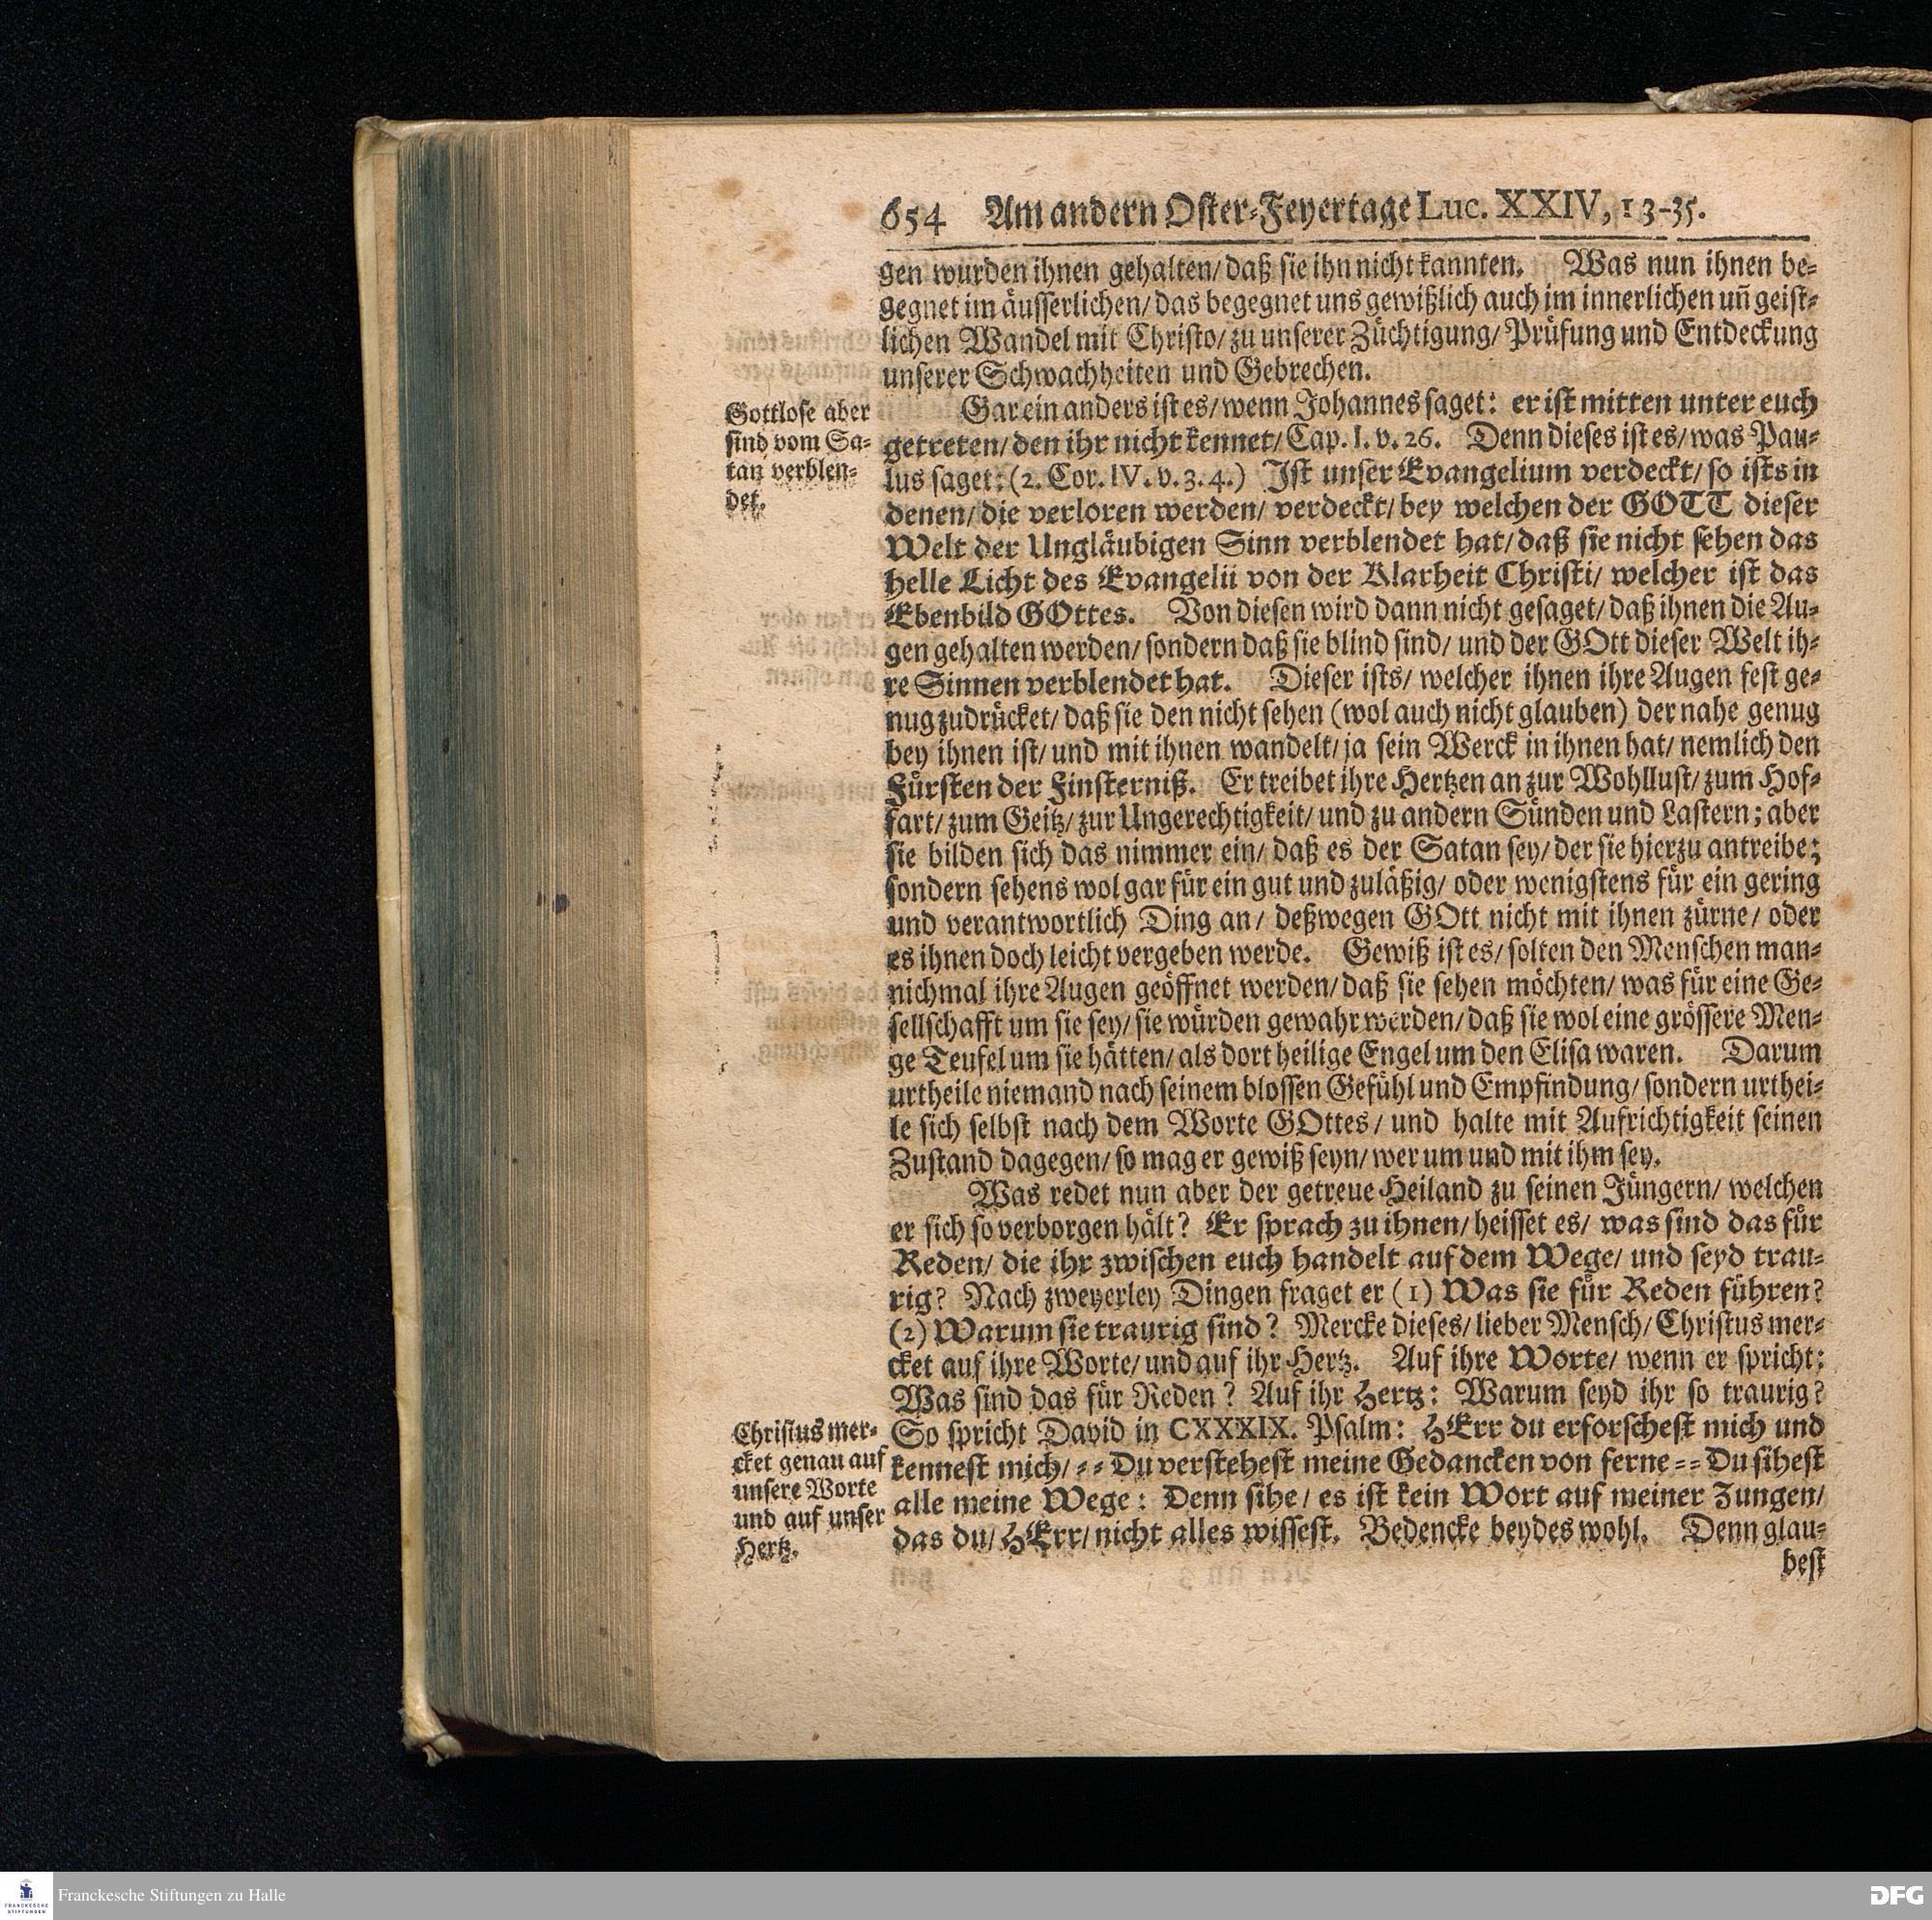 654 Am andern Oster-Feyertage Luc. XXIV, 13-35.
gen wurden ihnen gehalten/ daß sie ihn nicht kannten. Was nun ihnen be-
gegnet im äusserlichen/ das begegnet uns gewißlich auch im innerlichen uñ geist-
lichen Wandel mit Christo/ zu unserer Züchtigung/ Prüfung und Entdeckung
unserer Schwachheiten und Gebrechen.
Gottlose aber
sind vom Sa-
tan verblen-
det.
Gar ein anders ist es/ wenn Johannes saget: er ist mitten unter euch
getreten/ den ihr nicht kennet/ Cap. I. v. 26. Denn dieses ist es/ was Pau-
lus saget: (2. Cor. IV. v. 3. 4.) Ist unser Evangelium verdeckt/ so ists in
denen/ die verloren werden/ verdeckt/ bey welchen der GOTT dieser
Welt der Ungläubigen Sinn verblendet hat/ daß sie nicht sehen das
helle Licht des Evangelii von der Klarheit Christi/ welcher ist das
Ebenbild GOttes. Von diesen wird dann nicht gesaget/ daß ihnen die Au-
gen gehalten werden/ sondern daß sie blind sind/ und der GOtt dieser Welt ih-
re Sinnen verblendet hat. Dieser ists/ welcher ihnen ihre Augen fest ge-
nug zudrücket/ daß sie den nicht sehen (wol auch nicht glauben) der nahe genug
bey ihnen ist/ und mit ihnen wandelt/ ja sein Werck in ihnen hat/ nemlich den
Fürsten der Finsterniß. Er treibet ihre Hertzen an zur Wohllust/ zum Hof-
fart/ zum Geitz/ zur Ungerechtigkeit/ und zu andern Sünden und Lastern; aber
sie bilden sich das nimmer ein/ daß es der Satan sey/ der sie hierzu antreibe;
sondern sehens wol gar für ein gut und zuläßig/ oder wenigstens für ein gering
und verantwortlich Ding an/ deßwegen GOtt nicht mit ihnen zürne/ oder
es ihnen doch leicht vergeben werde. Gewiß ist es/ solten den Menschen man-
nichmal ihre Augen geöffnet werden/ daß sie sehen möchten/ was für eine Ge-
sellschafft um sie sey/ sie würden gewahr werden/ daß sie wol eine grössere Men-
ge Teufel um sie hätten/ als dort heilige Engel um den Elisa waren. Darum
urtheile niemand nach seinem blossen Gefühl und Empfindung/ sondern urthei-
le sich selbst nach dem Worte GOttes/ und halte mit Aufrichtigkeit seinen
Zustand dagegen/ so mag er gewiß seyn/ wer um und mit ihm sey.
Was redet nun aber der getreue Heiland zu seinen Jüngern/ welchen
er sich so verborgen hält? Er sprach zu ihnen/ heisset es/ was sind das für
Reden/ die ihr zwischen euch handelt auf dem Wege/ und seyd trau-
rig? Nach zweyerley Dingen fraget er (1) Was sie für Reden führen?
(2) Warum sie traurig sind? Mercke dieses/ lieber Mensch/ Christus mer-
cket auf ihre Worte/ und auf ihr Hertz. Auf ihre Worte/ wenn er spricht:
Was sind das für Reden? Auf ihr Hertz: Warum seyd ihr so traurig?
Christus mer-
cket genau auf
unsere Worte
und auf unser
Hertz.
So spricht David in CXXXIX. Psalm: HErr du erforschest mich und
kennest mich/ -- Du verstehest meine Gedancken von ferne -- Du sihest
alle meine Wege: Denn sihe/ es ist kein Wort auf meiner Zungen/
das du/ HErr/ nicht alles wissest. Bedencke beydes wohl. Denn glau-
best
Franckesche Stiftungen zu Halle
FRANCKESCHE
STIFTUNGEN
DFG